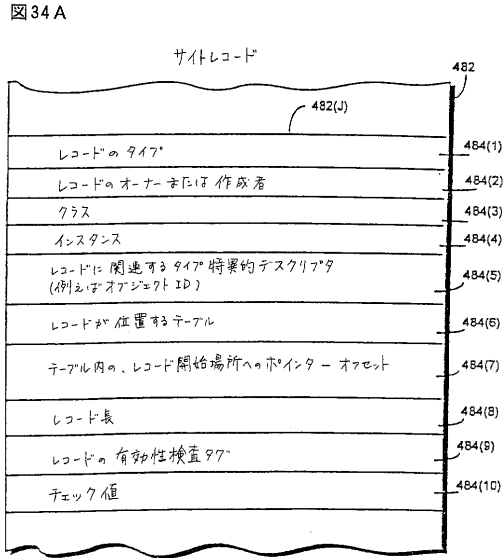 図34A
サイトレコード
482
482(J)
レコードの タイプ
484(1)
レコードのオーナーまたは 作成者
484(2)
クラス
484(3)
インスタンス
484(4)
レコードに 関連するタイプ特異的デスクリプタ
(例えばオブジェクトID)
484(5)
レコードが 位置するテーブル
484(6)
テーブル内の、レコード開始場所へのポインター オフセット
484(7)
レコード長
484(8)
レコードの 有効性検査タグ
484(9)
チェック値
484(10)